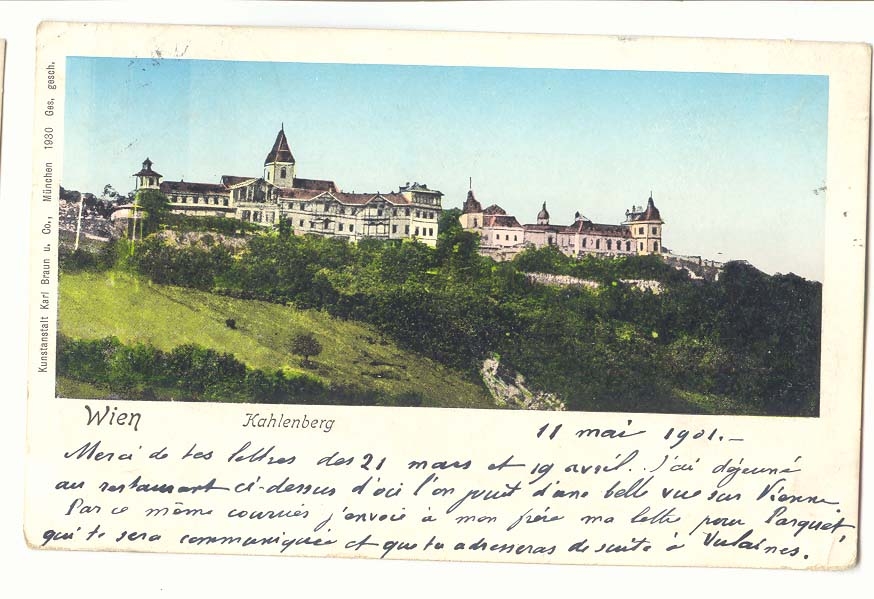 Kunstanstalt Karl Braun u. Co., München 1930 Ges. gesch.
Wien Kahlenberg
11 mai 1901.-
Merci de tes lettres des 21 mars et 19 avril. J'ai déjeuné
au restaurant ci-dessus d'où l'on jouit d'une belle vue sur Vienne.
Par ce même courrier j'envoie à mon frère ma lettre pour Parquet,
qui te sera communiquée et que tu adresseras de suite à Vulaines.